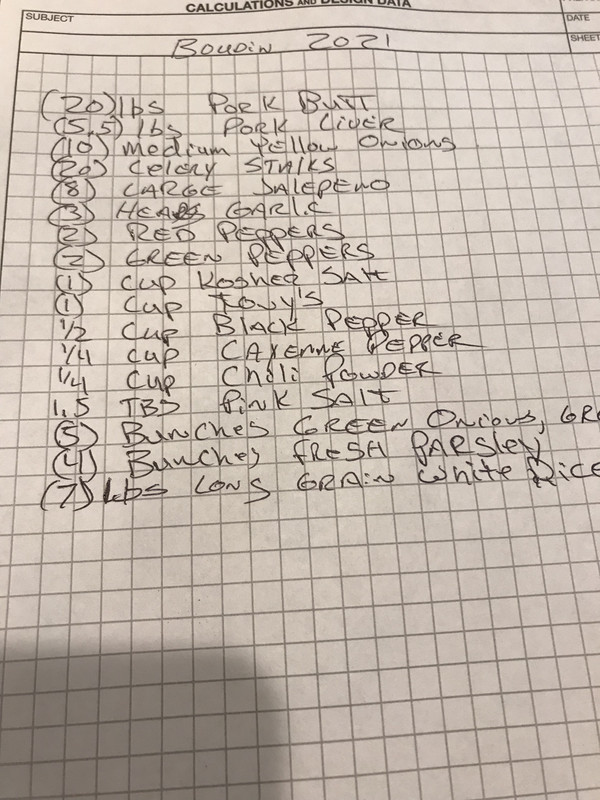 CALCULATIONS AND DESIGN DATA
SUBJECT
DATE
SHEET
Boudin 2021
(20) lbs Pork Butt
(5.5) lbs PORK LIVER
(10) Medium Yellow Onions
(20) Celery STALKS
(8) LARGE JALEPENO
(3) HEADS GARLIC
(2) RED PEPPERS
(2) GREEN PEPPERS
(1) Cup Kosher Salt
(1) Cup Tony's
1/2 Cup Black PEPPER
1/4 Cup CAYENNE PEPPER
1/4 Cup Chili POWDER
1.5 TBS Pink SAlt
(5) Bunches GREEN Onions, GR
(4) Bunches FRESH PARSLEY
(7) Lbs LONG GRAIN White Rice